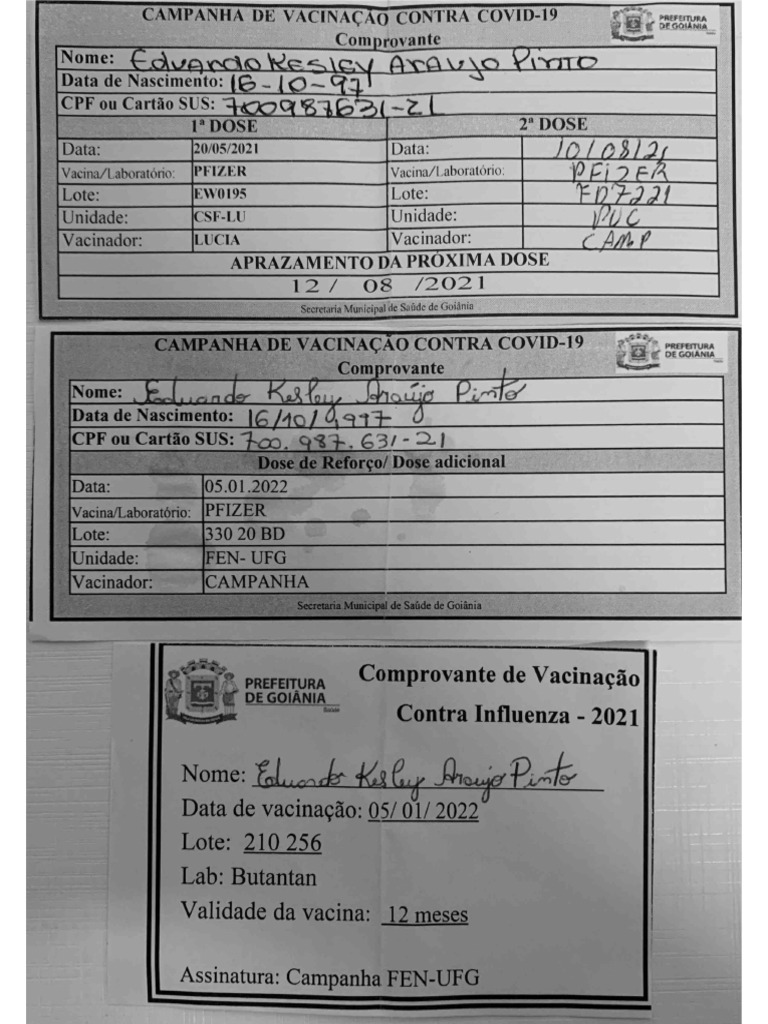 CAMPANHA DE VACINAÇÃO CONTRA COVID-19
PREFEITURA
DE GOIÂNIA
Comprovante
Nome: Eduardo Kesley Araujo Pinto
Data de Nascimento: 16-10-97
CPF ou Cartão SUS: 700987631-21
1ª DOSE 2ª DOSE
Data: 20/05/2021 Data: 10/08/21
Vacina/Laboratório: PFIZER Vacina/Laboratório: PFIZER
Lote: EW0195 Lote: FD7221
Unidade: CSF-LU Unidade: PUC
Vacinador: LUCIA Vacinador: CAMP
APRAZAMENTO DA PRÓXIMA DOSE
12 / 08 /2021
Secretaria Municipal de Saúde de Goiânia
CAMPANHA DE VACINAÇÃO CONTRA COVID-19
PREFEITURA
DE GOIÂNIA
Comprovante
Nome: Eduardo Kesley Araújo Pinto
Data de Nascimento: 16/10/1997
CPF ou Cartão SUS: 700.987.631-21
Dose de Reforço/ Dose adicional
Data: 05.01.2022
Vacina/Laboratório: PFIZER
Lote: 330 20 BD
Unidade: FEN- UFG
Vacinador: CAMPANHA
Secretaria Municipal de Saúde de Goiânia
PREFEITURA
DE GOIÂNIA
Saúde
Comprovante de Vacinação
Contra Influenza - 2021
Nome: Eduardo Kesley Araujo Pinto
Data de vacinação: 05/ 01/ 2022
Lote: 210 256
Lab: Butantan
Validade da vacina: 12 meses
Assinatura: Campanha FEN-UFG